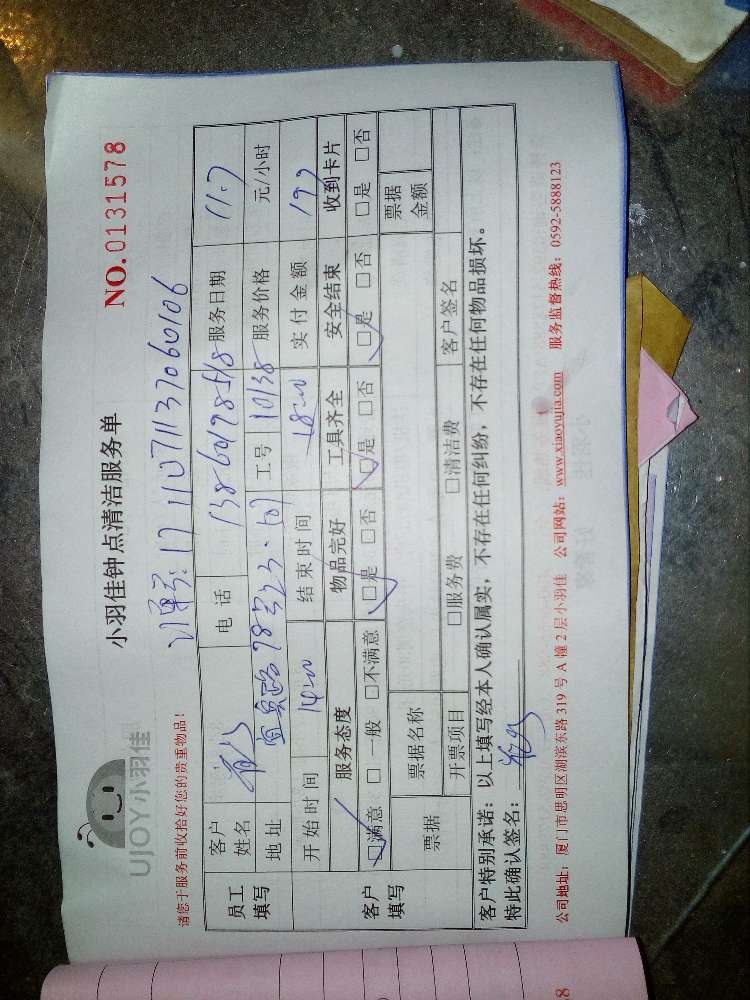 UJOY小羽佳
小羽佳钟点清洁服务单
NO.0131578
请您于服务前收拾好您的贵重物品!
订单号:1711071137060106
员工填写 客户姓名 电话 服务日期 11.7
地址 宜宾路78号23-601 工号 10138 服务价格 元/小时
客户填写 开始时间 14:00 结束时间 18:00 实付金额 199
服务态度 物品完好 工具齐全 安全结束 收到卡片
☑满意 □一般 □不满意 ☑是 □否 ☑是 □否 ☑是 □否 □是 □否
票据 票据名称 票据金额
开票项目 □服务费 □清洁费 客户签名
客户特别承诺:以上填写经本人确认属实,不存在任何纠纷,不存在任何物品损坏。
特此确认签名:
公司地址:厦门市思明区湖滨东路319号A幢2层小羽佳 公司网站:www.xiaoyujia.com 服务监督热线:0592-5888123